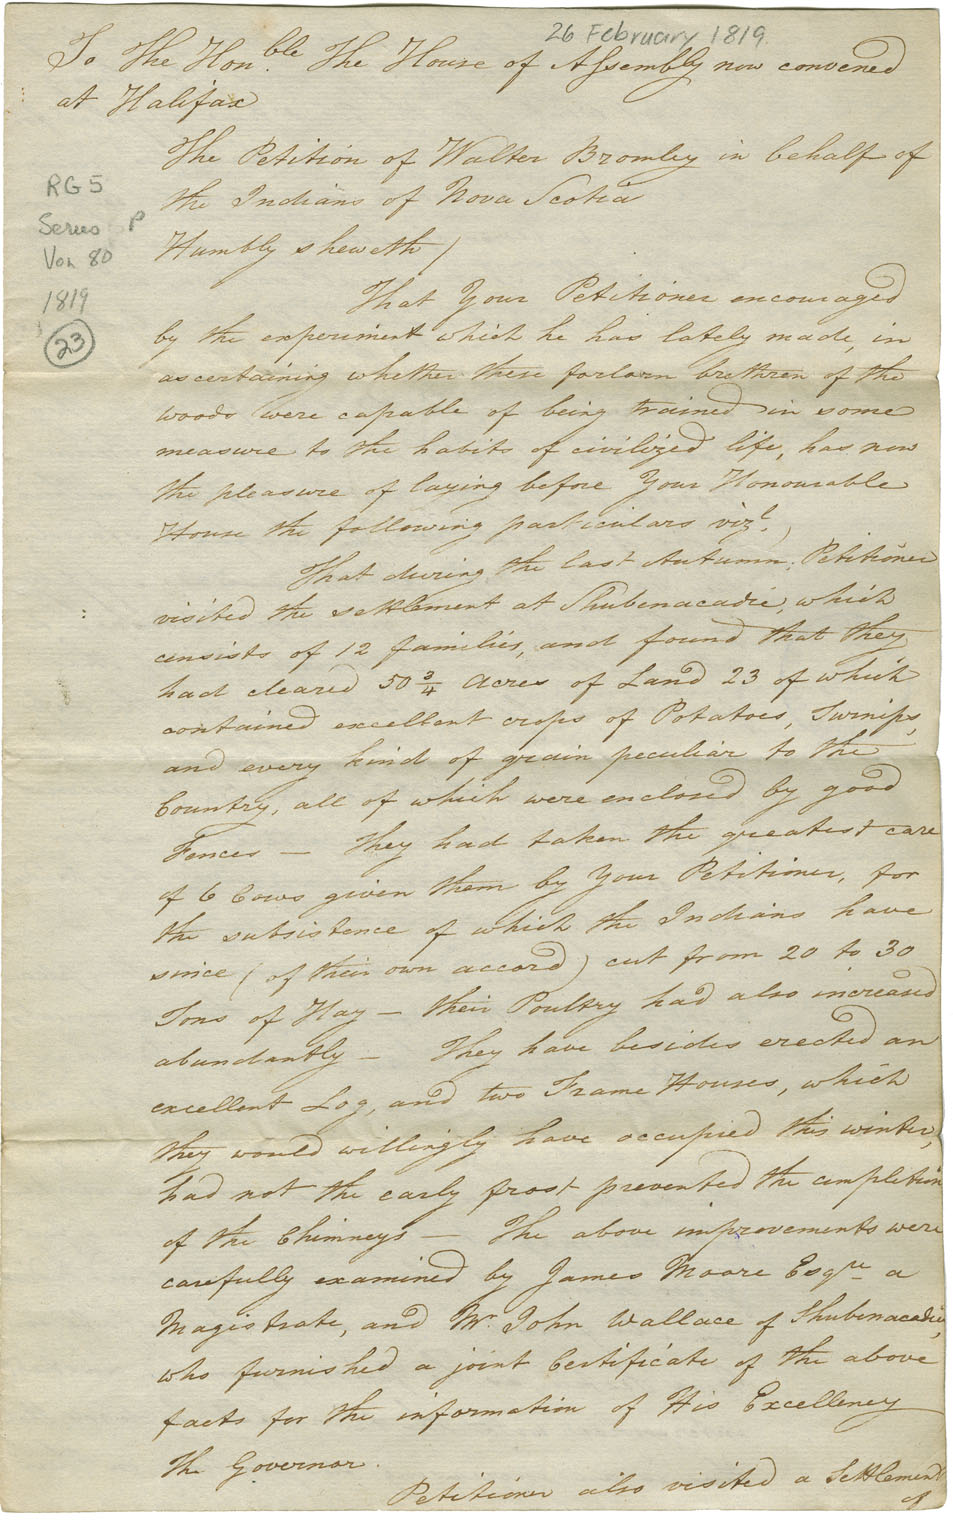 26 February 1819.
To The Hon.ble The House of Assembly now convened
at Halifax
The Petition of Walter Bromley in behalf of
the Indians of Nova Scotia
RG 5
Series P
Vol 80
1819
23
Humbly sheweth /
That Your Petitioner encouraged
by the experiment which he has lately made, in
ascertaining whether these forlorn brethren of the
woods were capable of being trained in some
measure to the habits of civilized life, has now
the pleasure of laying before Your Honourable
House the following particulars vizt.,
That during the last Autumn, Petitioner
visited the settlement at Shubenacadie, which
consists of 12 families, and found that they
had cleared 50 3/4 Acres of Land 23 of which
contained excellent crops of Potatoes, Turnips,
and every kind of grain peculiar to the
Country, all of which were enclosed by good
Fences — they had taken the greatest care
of 6 Cows given them by Your Petitioner, for
the subsistence of which the Indians have
since (of their own accord) cut from 20 to 30
Tons of Hay — their Poultry had also increased
abundantly — They have besides erected an
excellent Log, and two Frame Houses, which
they would willingly have occupied this winter,
had not the early frost prevented the completion
of the Chimneys — The above improvements were
carefully examined by James Moore Esqre a
Magistrate, and Mr. John Wallace of Shubenacadie,
who furnished a joint Certificate of the above
facts for the information of His Excellency
the Governor.
Petitioner also visited a Settlement
of